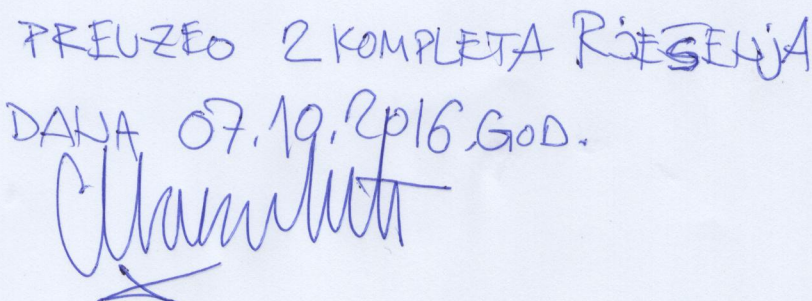 PREUZEO 2 KOMPLETA RJEŠENJA
DANA 07.10.2016.GOD.